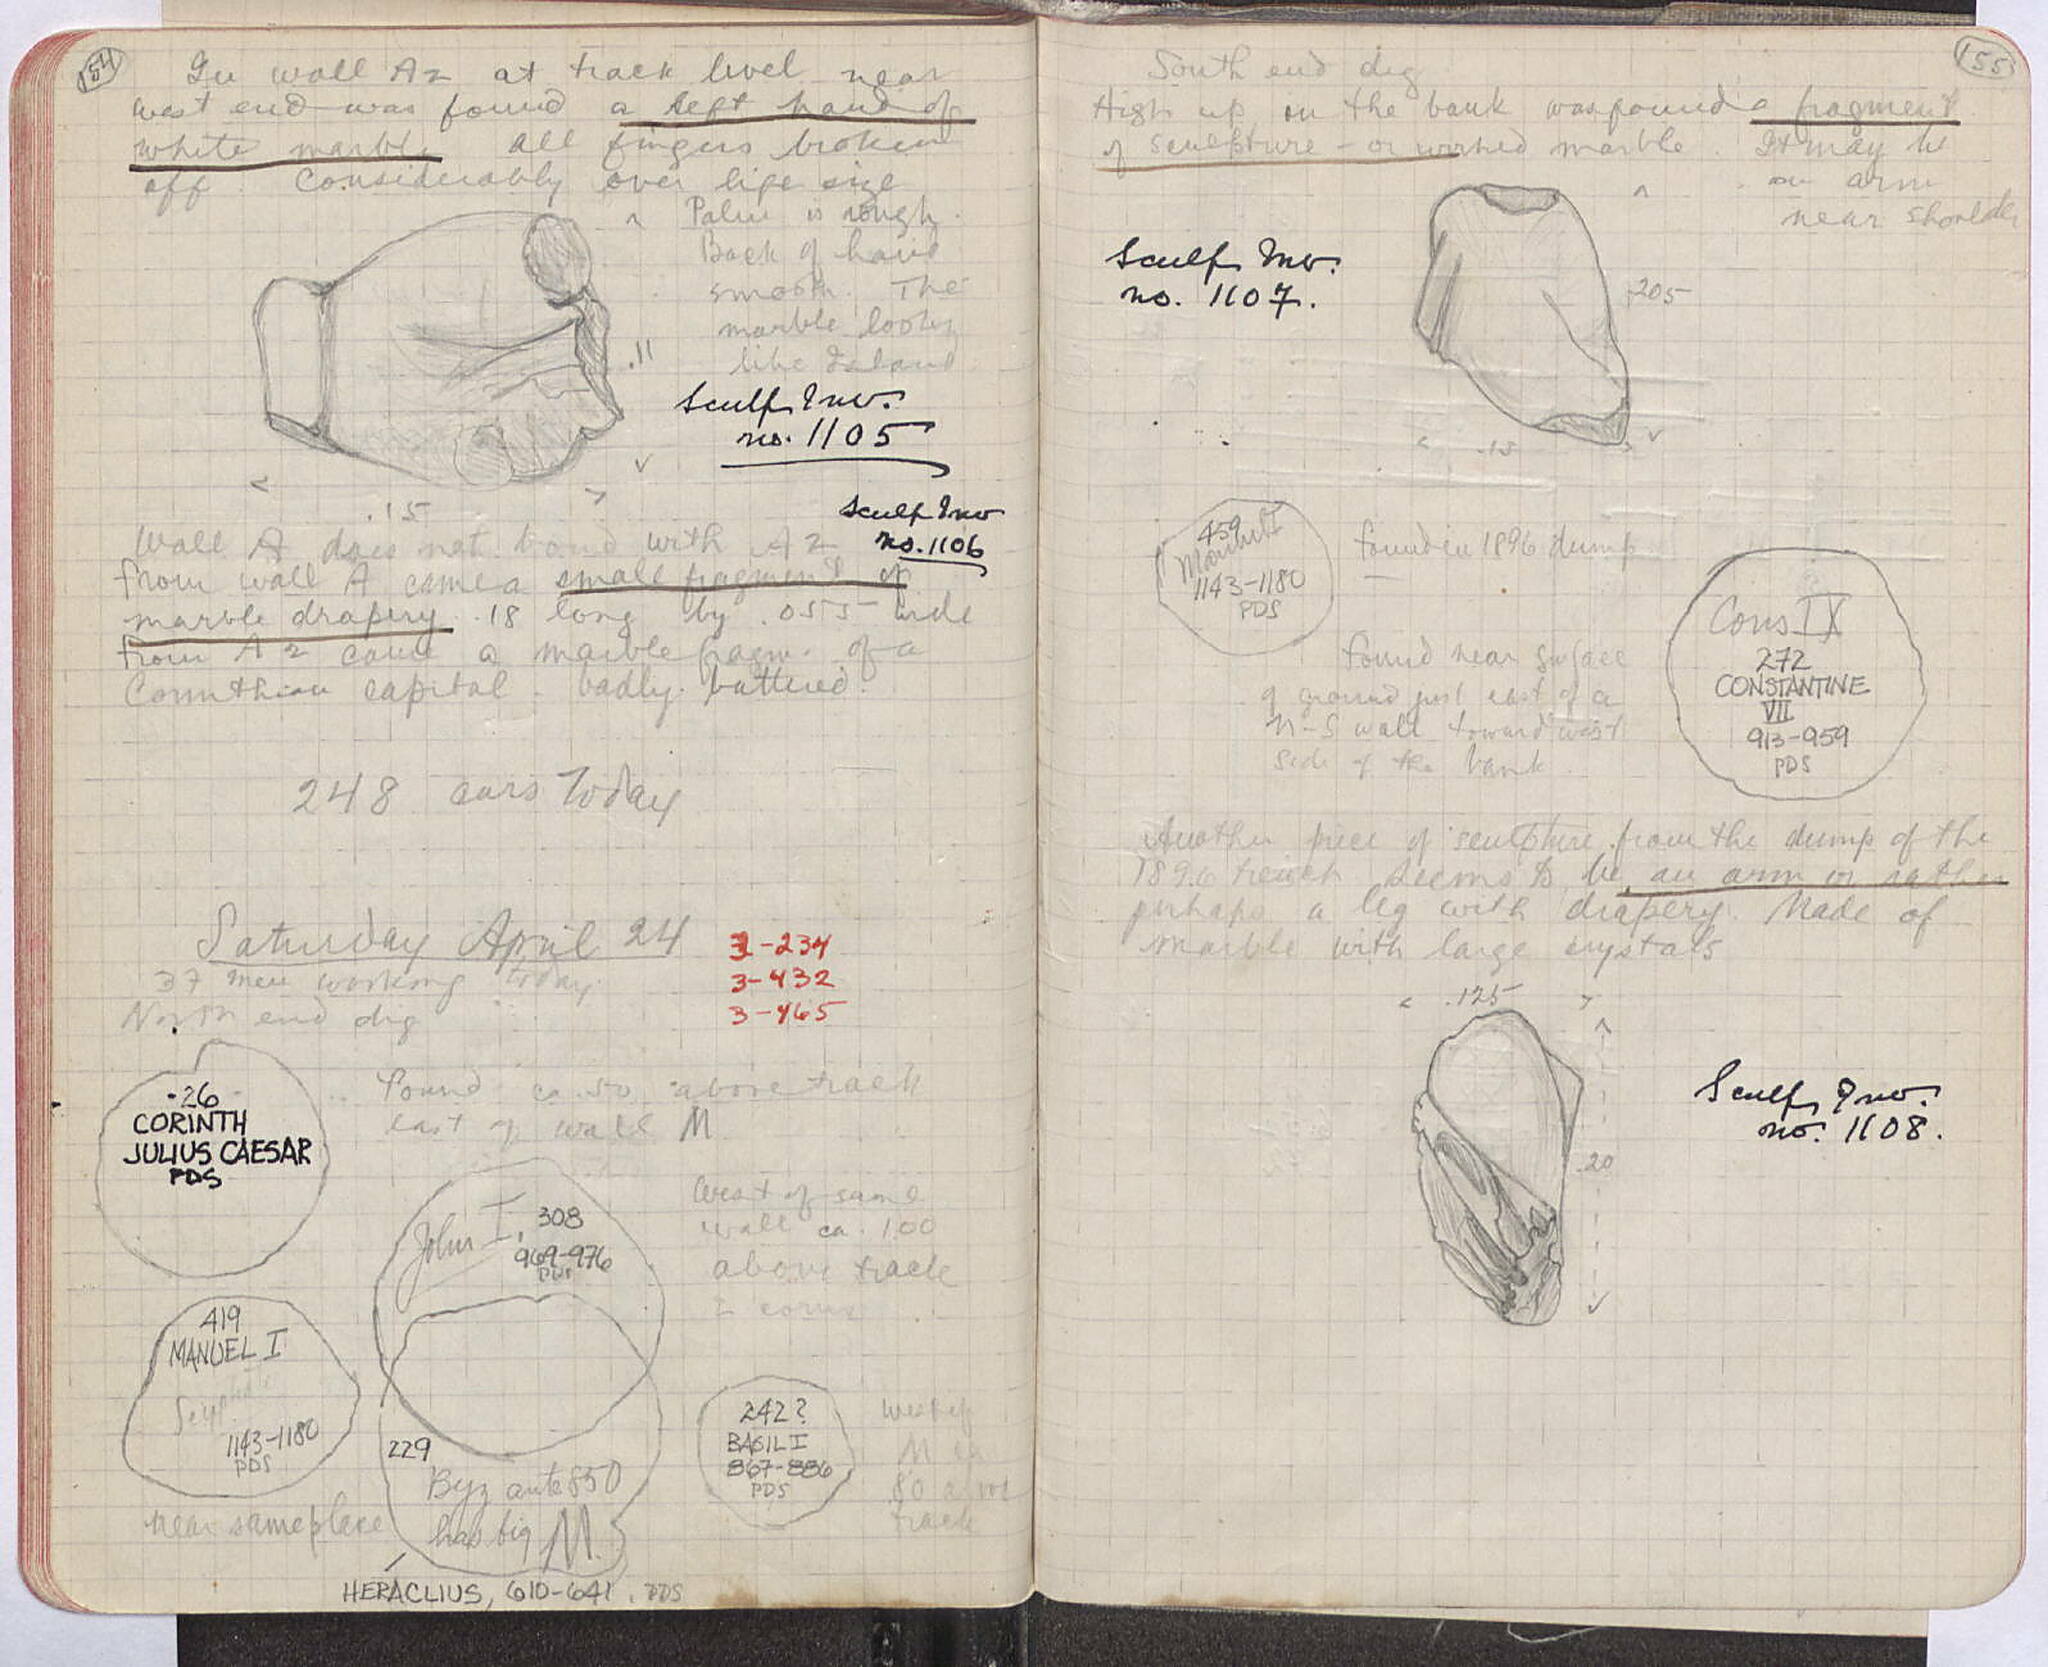 154
In wall A2 at track level near
west end was found a left hand of
white marble All fingers broken
off. Considerably over life size
Palm is rough.
Back of hand
smooth. The
marble looks
like Island
.11
Sculp. Inv.
no. 1105
.15
Sculp Inv
no. 1106
Wall A does not bond with A2
From wall A came a small fragment of
marble drapery .18 long by .055 wide
From A2 came a marble fragm. of a
Corinthian capital - badly battered.
248 cars today
Saturday April 24
37 men working today.
North end dig
3-234
3-432
3-465
26
CORINTH
JULIUS CAESAR
PDS
Found ca .50 above track
east of wall M
John I, 308
969-976
PDS
West of same
wall ca. 1.00
above track
2 coins
419
MANUEL I
Scyphate
1143-1180
PDS
near same place
229
Byz ante 850
has big M.
HERACLIUS, 610-641. PDS
242?
BASIL I
867-886
PDS
West of
M ca
80 above
track
155
South end dig
High up on the bank was found a fragment
of sculpture - or worked marble. It may be
an arm
near shoulder
Sculp. Inv.
no. 1107.
.205
.15
459
Manuel I
1143-1180
PDS
Found in 1896 dump
Cons IX
272
CONSTANTINE
VII
913-959
PDS
Found near surface
of ground just east of a
N-S wall toward west
side of the bank
Another piece of sculpture from the dump of the
1896 trench seems to be an arm or rather
perhaps a leg with drapery. Made of
marble with large crystals
.125
.20
Sculp. Inv.
no. 1108.